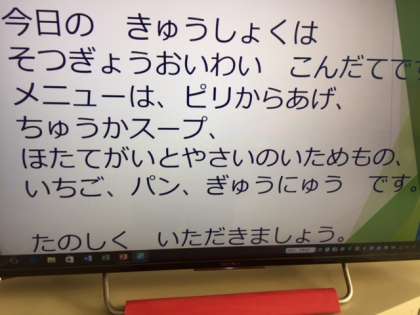 今日の　きゅうしょくは
そつぎょうおいわい　こんだてです
メニューは、ピリからあげ、
ちゅうかスープ、
ほたてがいとやさいのいためもの、
いちご、パン、ぎゅうにゅう　です。
たのしく　いただきましょう。